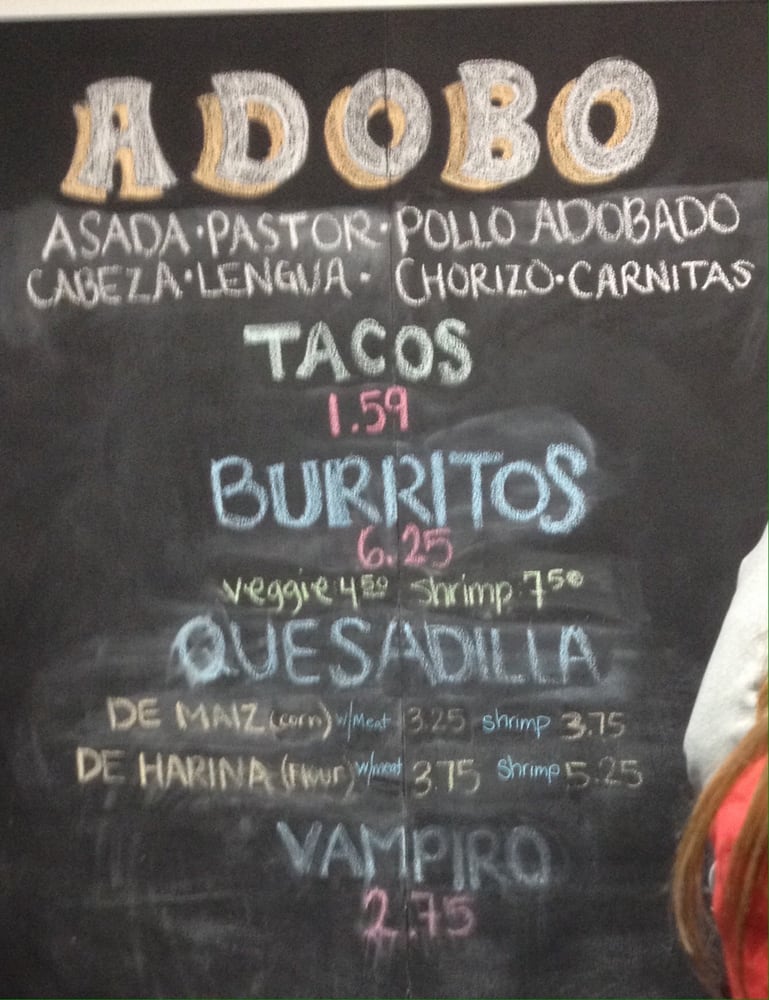 ADOBO
ASADA · PASTOR · POLLO ADOBADO
CABEZA · LENGUA · CHORIZO · CARNITAS
TACOS
1.59
BURRITOS
6.25
veggie 4 50 shrimp 7 50
QUESADILLA
DE MAIZ (corn) w/Meat 3.25 shrimp 3.75
DE HARINA (Flour) w/meat 3.75 Shrimp 5.25
VAMPIRO
2.75